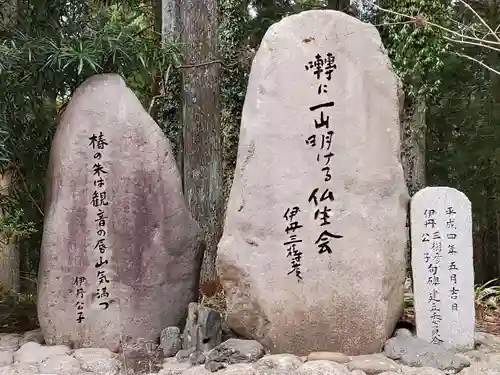 囀に一山明ける仏生会
伊丹三樹彦
椿の朱は観音の唇山気満つ
伊丹公子
平成四年五月吉日
伊丹三樹彦
公子句碑建立委員会